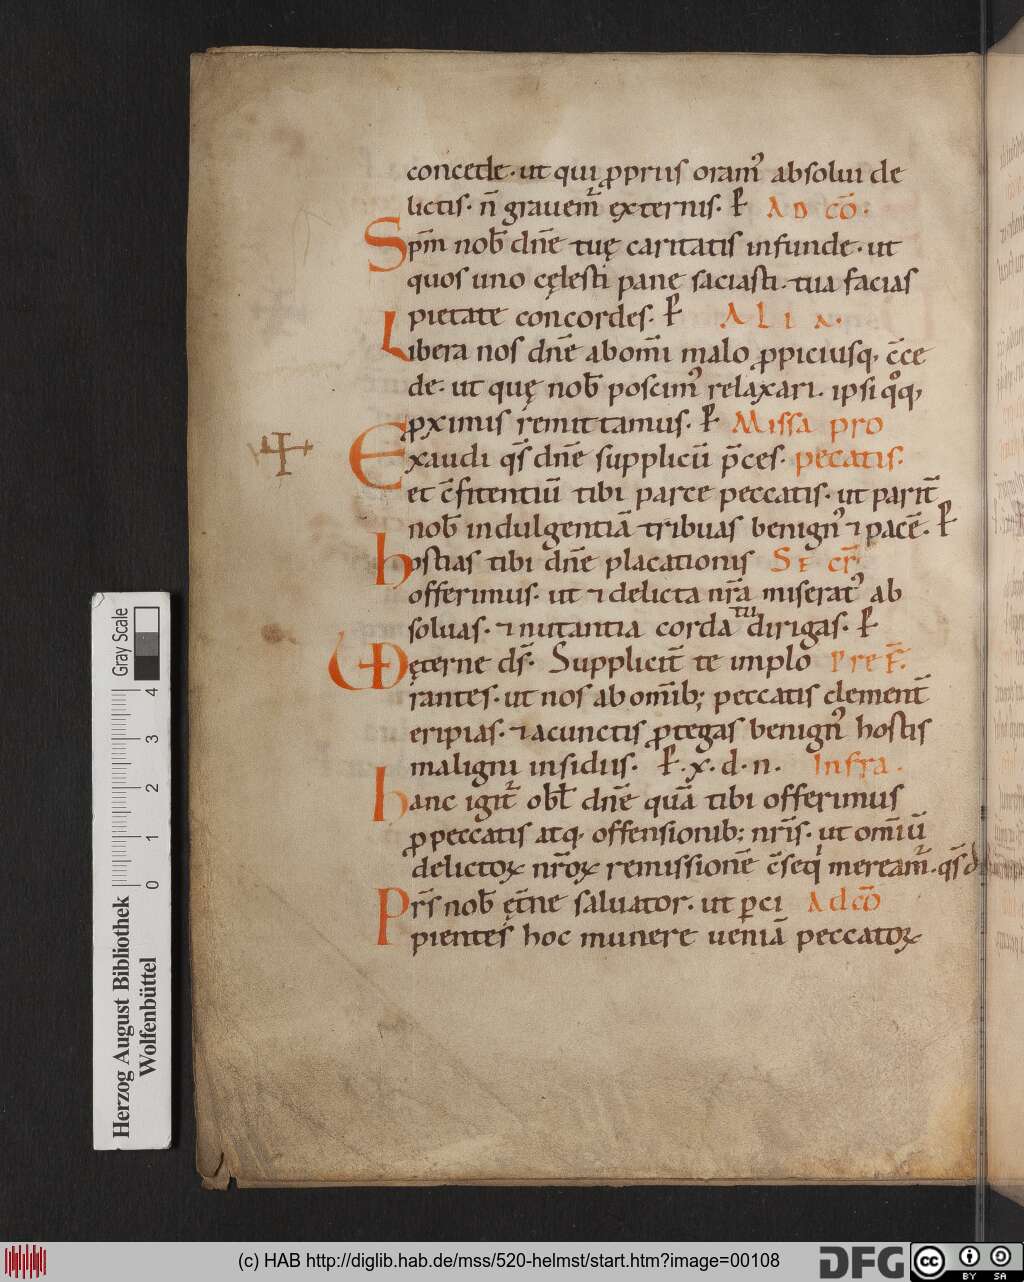 concede · ut qui ꝓpriis oram᷒ absolui de
lictis · n̄ grauem̄ externis · ꝑ AD cō ·
Spm̄ nob̄ dn̄e tuę caritatis infunde · ut
quos uno cęlesti pane saciasti · tua facias
pietate concordes · ꝑ ALIA ·
Libera nos dn̄e ab om̄i malo ꝓpiciusq · c̄ce
de · ut quę nob̄ poscim᷒ relaxari · ipsi qͦq,
ꝓximis remittamus · ꝑ Missa pro
Exaudi qs̄ dn̄e supplicū p̄ces · pecatis ·
et c̄fitentiū tibi parce peccatis · ut parit̄
nob̄ indulgentiā tribuas benign᷒ ⁊ pacē · ꝑ
hostias tibi dn̄e placationis SECR̄
offerimus · ut ⁊ delicta nr̄a miserat᷒ ab
soluas · ⁊ nutantia corda tu dirigas · ꝑ
VD ęterne ds̄ · Supplicit̄ te implo PreF̄ ·
rantes · ut nos ab om̄ib; peccatis clement̄
eripias · ⁊ a cunctis ꝓtegas benign᷒ hostis
maligni insidiis · ꝑ · x · d · n · Infra ·
hanc igit̄ obł dn̄e quā tibi offerimus
ꝓ peccatis atq · offensionib; nr̄is · ut om̄iū
delictoꝝ nr̄oꝝ remissionē c̄seqi meream̄ · qs̄
Prs̄ nob̄ ęt̄ne saluator · ut ꝑci Ad cō
pientes hoc munere ueniā peccatoꝝ
Gray Scale
4 3 2 1 0
Herzog August Bibliothek
Wolfenbüttel
(c) HAB http://diglib.hab.de/mss/520-helmst/start.htm?image=00108
DFG
cc BY SA